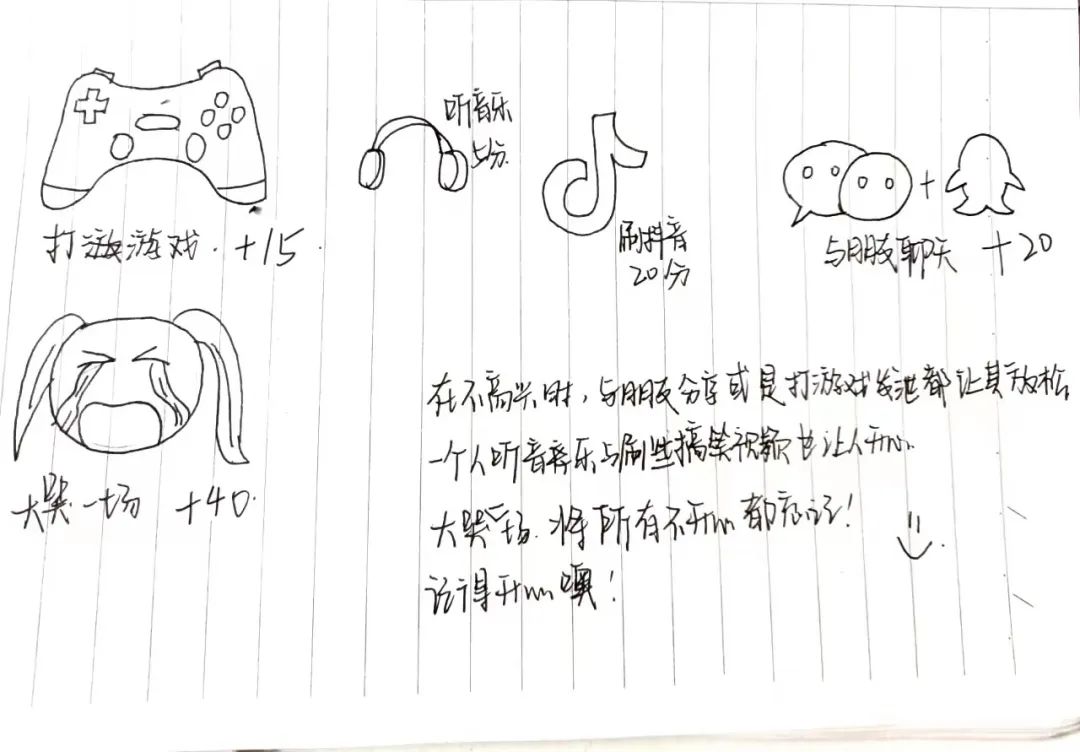 听音乐
5分.
打游游戏. +15.
刷抖音
20分
与朋友聊天 +20
大哭一场 +40.
在不高兴时,与朋友分享或是打游戏发泄都让其放松
一个人听音乐与刷些搞笑视频也让人开心.
大哭一场.将所有不开心都忘记!
记得开心噢!